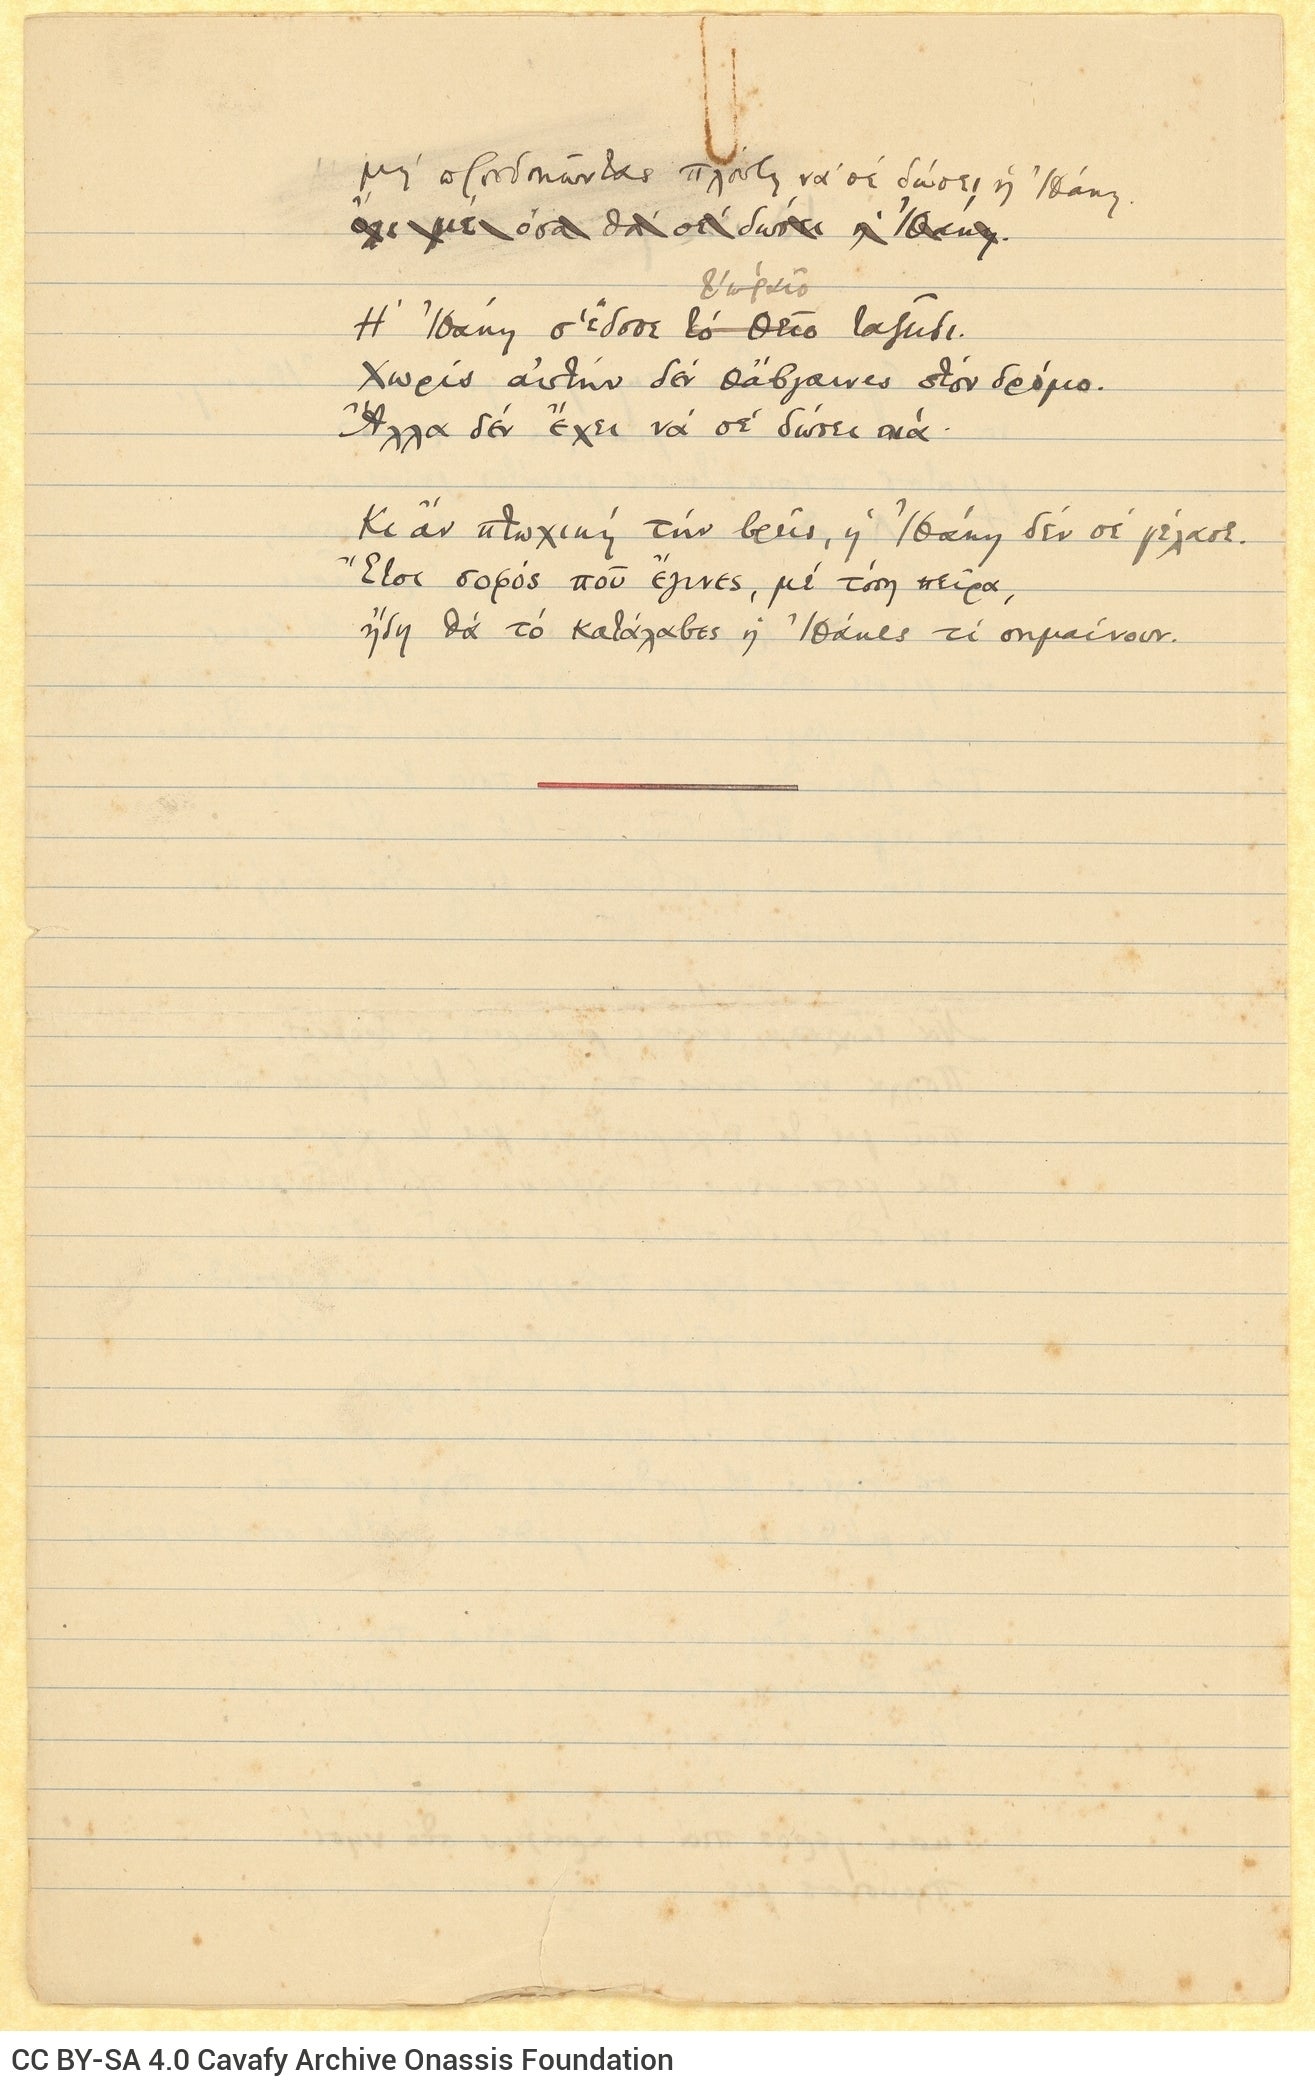 μή προσδοκῶντας πλούτη νά σέ δώσει ἡ Ἰθάκη.
ὄχι μέ ὅσα θά σέ δώσει ἡ Ἰθάκη.
τ' ὡραῖο
Η Ἰθάκη σ' ἔδωσε τό θεῖο ταξεῖδι.
Χωρίς αὐτήν δέν θἄβγαινες στόν δρόμο.
Ἄλλα δέν ἔχει νά σέ δώσει πιά.
Κι ἄν πτωχική τήν βρεῖς, ἡ Ἰθάκη δέν σέ γέλασε.
Ἔτσι σοφός ποῦ ἔγινες, μέ τόση πεῖρα,
ἤδη θά τό κατάλαβες ἡ Ἰθάκες τί σημαίνουν.
CC BY-SA 4.0 Cavafy Archive Onassis Foundation